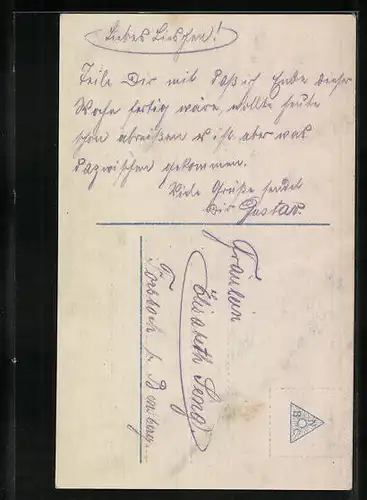 Liebes Lieschen!
Teile Dir mit daß ich Ende dieser
Woche fertig wäre, wollte heute
schon abreißen es ist aber was
dazwischen gekommen.
Viele Grüße sendet
Dir Gustav.
Fräulein
Elisabeth Seng
Forsbach b. Bensberg